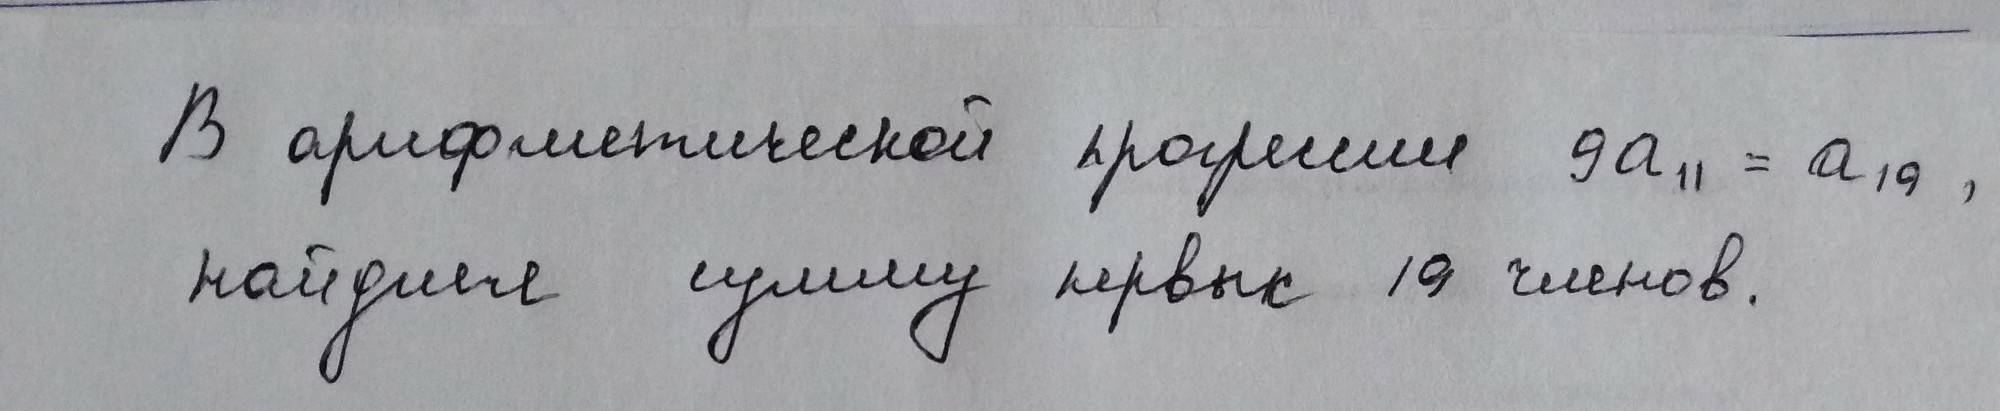 В арифметической прогрессии 9a₁₁ = a₁₉,
найдите сумму первых 19 членов.